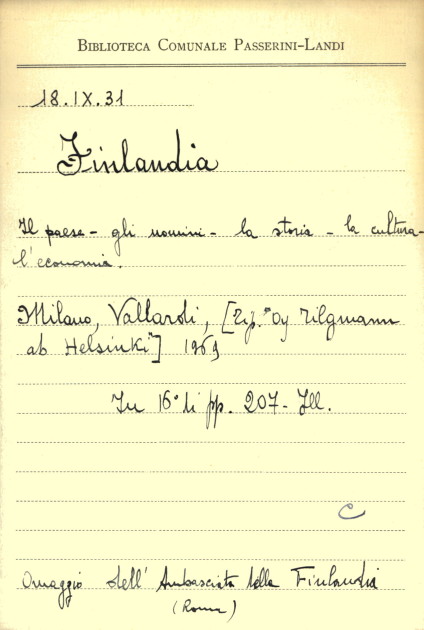 BIBLIOTECA COMUNALE PASSERINI-LANDI
18.IX.31
Finlandia
Il paese - gli uomini - la storia - la cultura -
l'economia.
Milano, Vallardi, [Tip. "Oy Tilgmann
ab Helsinki"] 1969
In 16° di pp. 207 - Ill.
C
Omaggio dell'Ambasciata della Finlandia
(Roma)